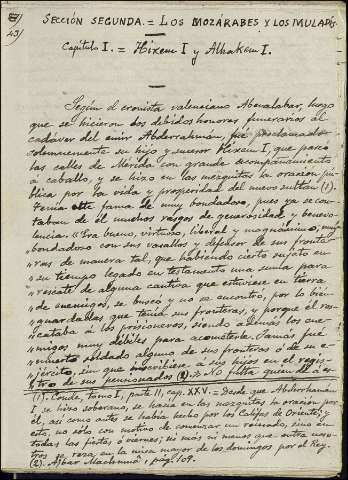 43
SECCIÓN SEGUNDA. = LOS MOZÁRABES Y LOS MULADÍS
Capítulo I. = Hixem I y Alhakem I.
Según el cronista valenciano Abenalabar, luego
que se hicieron los debidos honores funerarios al
cadáver del emir Abderrahmán, fué proclamado
solemnemente su hijo y sucesor Hixem I, que paseó
las calles de Mérida con grande acompañamiento
á caballo, y se hizo en las mezquitas la oración pú-
blica por la vida y prosperidad del nuevo sultán (1).
Tenía este fama de muy bondadoso, pues ya se con-
taban de él muchos rasgos de generosidad y benevo-
lencia. "Era bueno, virtuoso, liberal y magnánimo; muy
"bondadoso con sus vasallos y defensor de sus fronte-
"ras de manera tal, que habiendo cierto sujeto en
"su tiempo legado en testamento una suma para
"rescate de alguna cautiva que estuviese en tierra
"de enemigos, se buscó y no se encontró, por lo bien
"guardadas que tenía sus fronteras, y porque él res-
"cataba á los prisioneros, siendo además los ene-
"migos muy débiles para acometerle. Jamás fué
"muerto soldado alguno de sus fronteras ó de su e-
"jército, sin que inscribiese á sus hijos en el regis-
"tro de sus pensionados (2). No falta quien dé á en-
(1). Conde, tomo I, parte II, cap. XXV. = Desde que Abderrhamán
I se hizo soberano, se hacía en las mezquitas la oración por
él, así como antes se había hecho por los Califas de Oriente; y
esto, no sólo con motivo de comenzar un reinado, sino en
todas las fiestas ó viernes; ni más ni menos que entre noso-
tros se reza en la misa mayor de los domingos por el Rey.
(2). Ajbar Machmuâ, pág. 109.